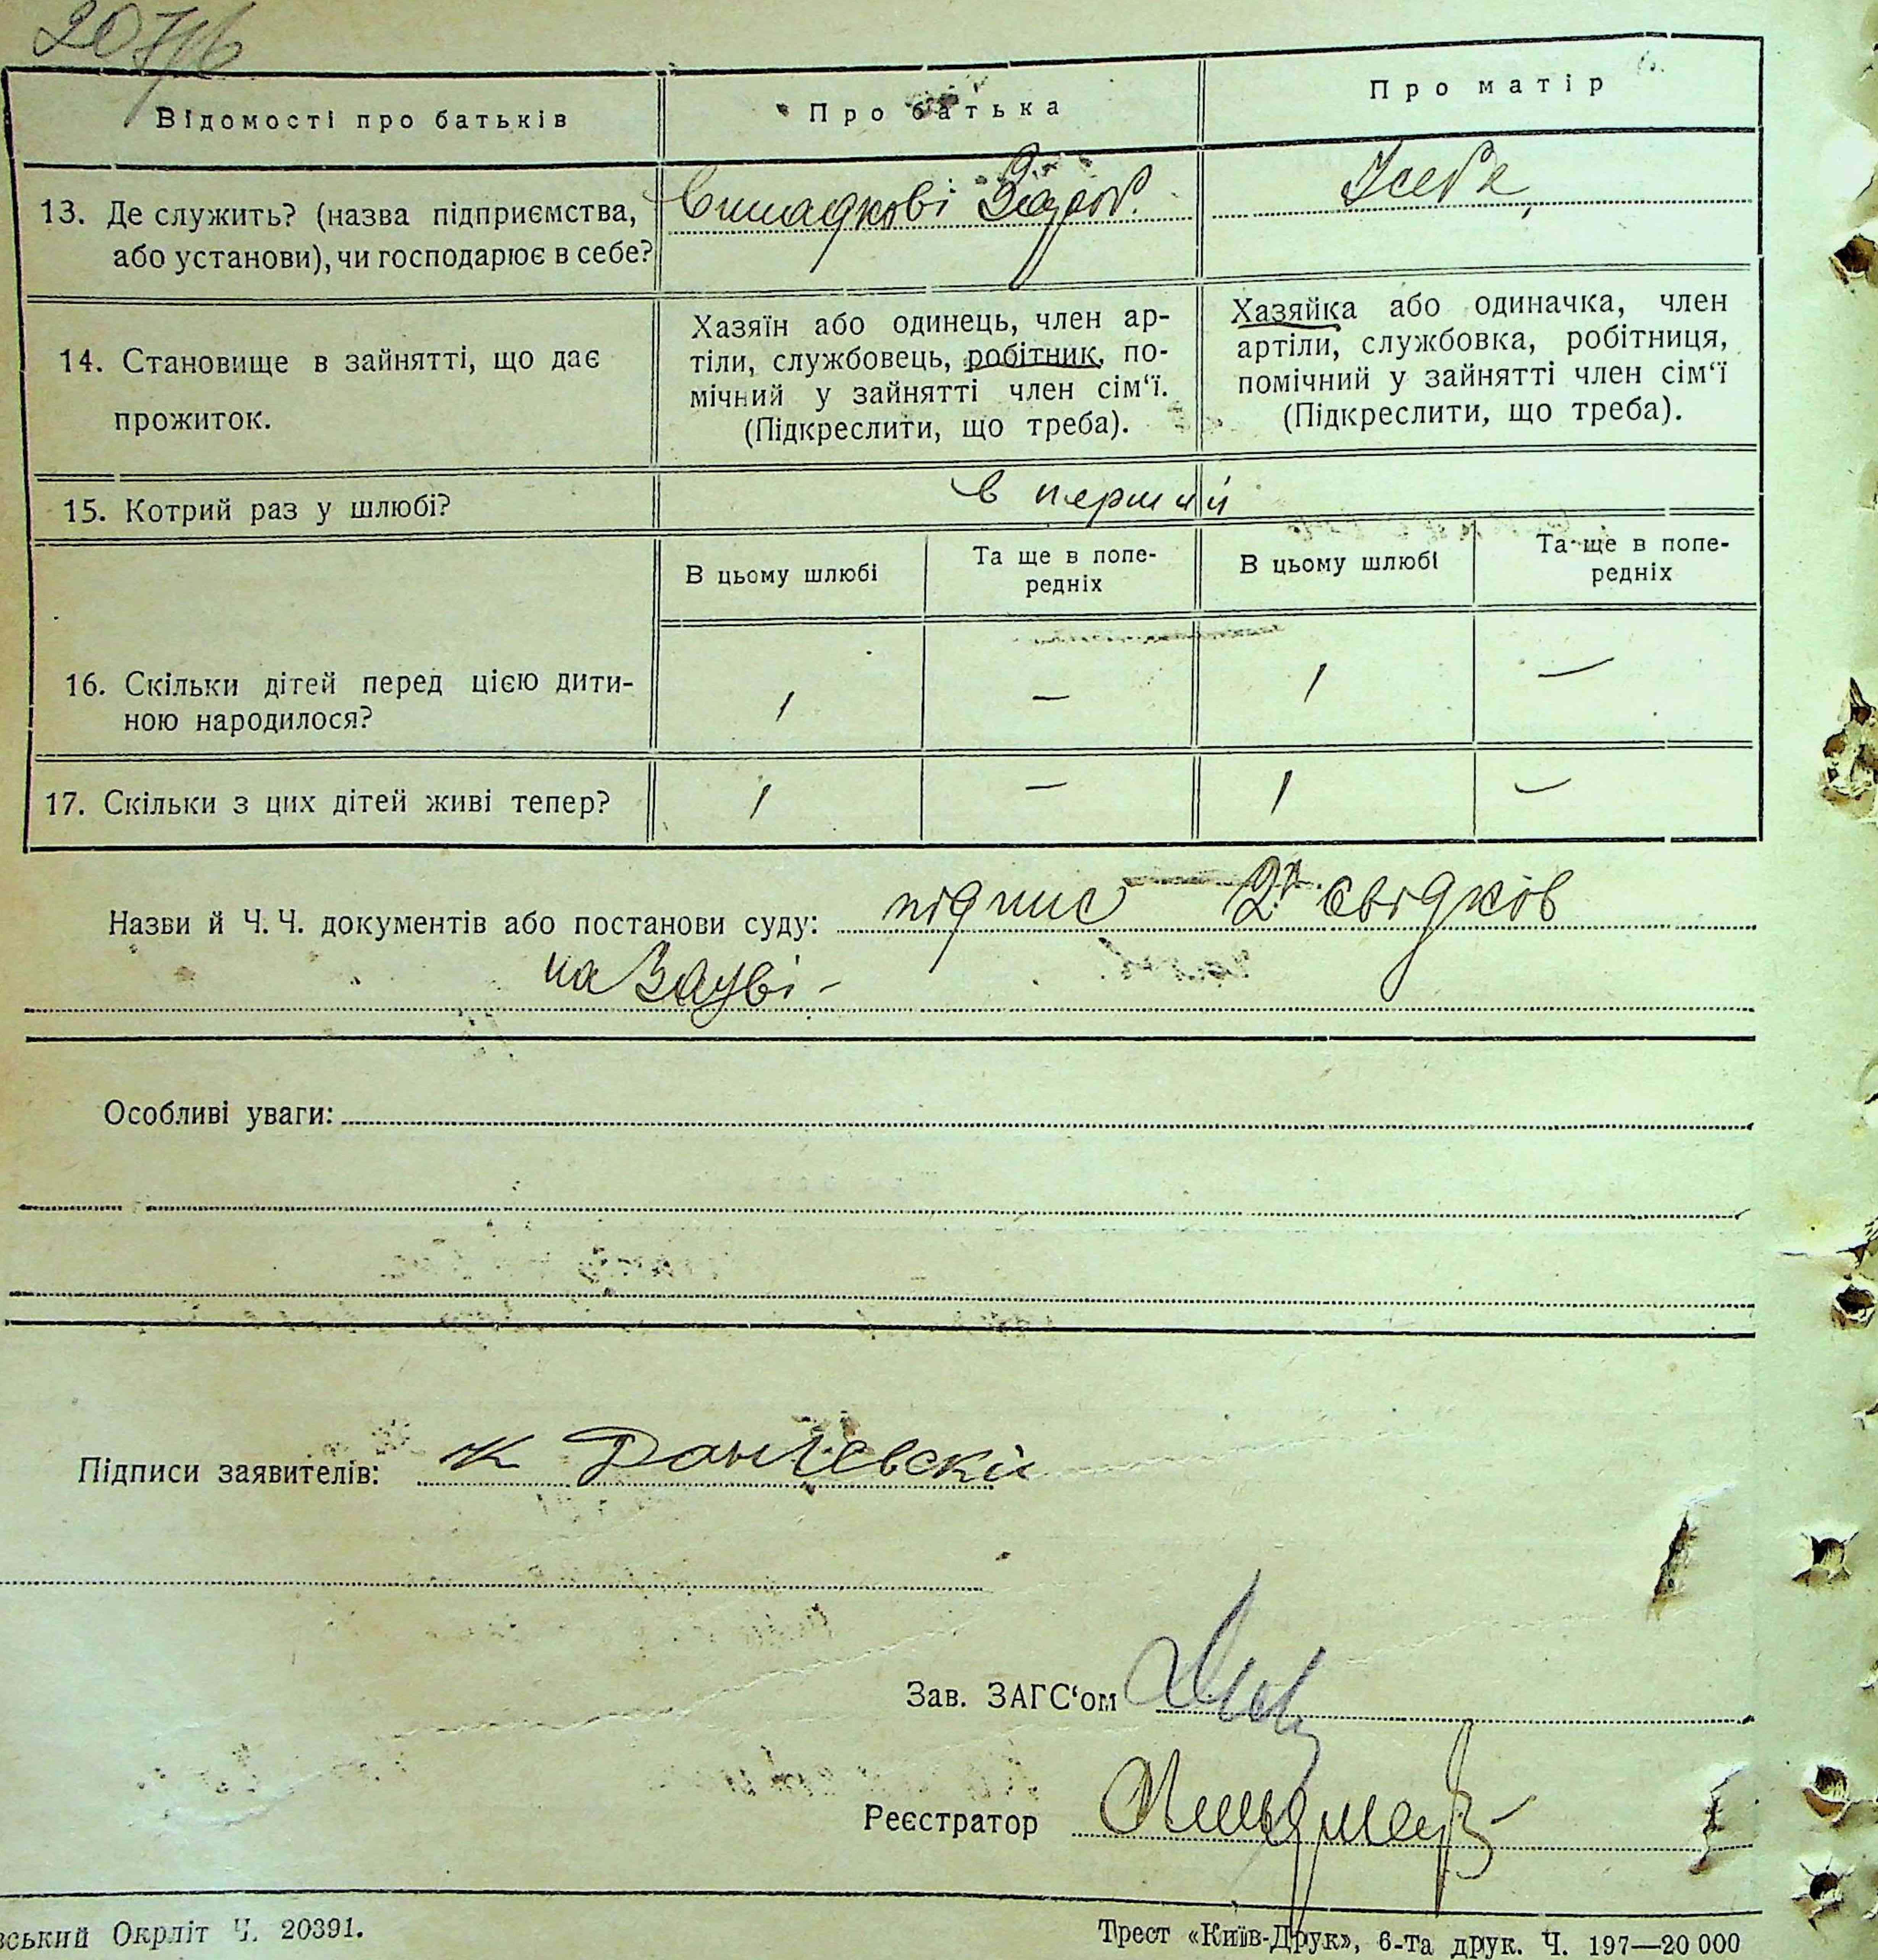 Відомості про батьків
Про батька
Про матір
13. Де служить? (назва підприємства,
або установи), чи господарює в себе?
випадкові Зароб.
У себе
14. Становище в зайнятті, що дає
прожиток.
Хазяїн або одинець, член ар-
тіли, службовець, робітник, по-
мічний у зайнятті член сім‘ї.
(Підкреслити, що треба).
Хазяйка або одиначка, член
артіли, службовка, робітниця,
помічний у зайнятті член сім‘ї
(Підкреслити, що треба).
15. Котрий раз у шлюбі?
в перший
В цьому шлюбі
Та ще в попе-
редніх
В цьому шлюбі
Та ще в попе-
редніх
16. Скільки дітей перед цією дити-
ною народилося?
1 — 1 —
17. Скільки з цих дітей живі тепер?
1 — 1 —
Назви й Ч. Ч. документів або постанови суду: підпис 2х свідків
на Заяві -
Особливі уваги:
Підписи заявителів:
Зав. ЗАГС‘ом
Реєстратор
вський Окрліт Ч. 20391.
Трест «Київ-Друк», 6-та друк. Ч. 197—20 000